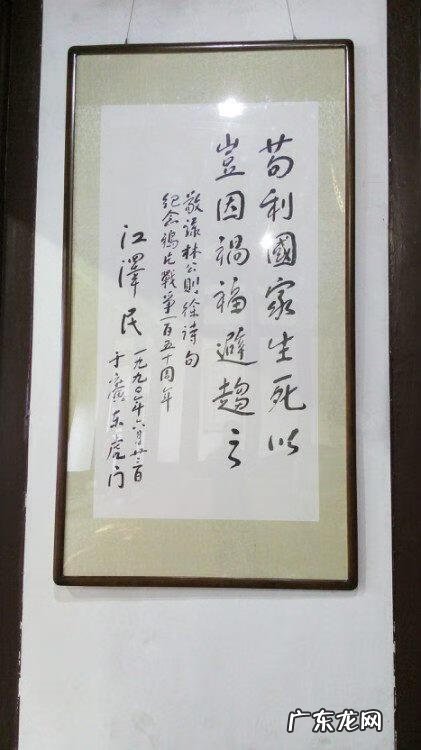 苟利國家生死以
豈因禍福避趨之
敬録林公則徐诗句
纪念鴉片戰爭一百五十周年
江澤民
一九九〇年六月廿二日
于廣东虎门
广东龙网